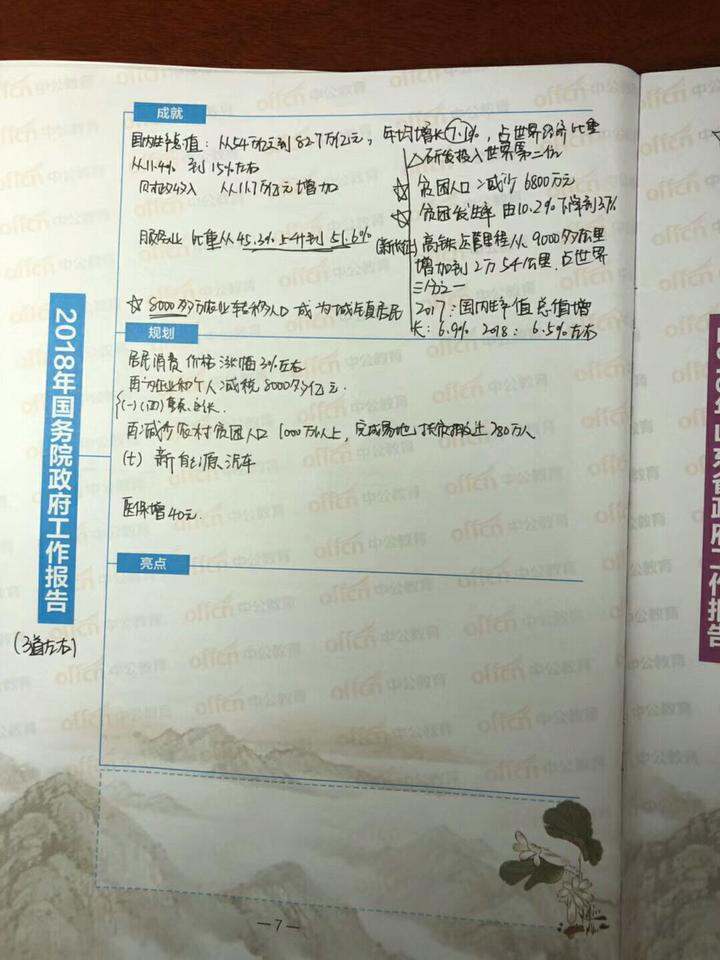 成就
国内生产总值：从54万亿元到82.7万亿元，年均增长7.1%，占世界经济比重
从11.4% 到15%左右
△研发投入世界第二位
财政收入 从11.7万亿元增加
☆ 贫困人口减少6800万元
☆ 贫困发生率由10.2%下降到3.1%
服务业比重从45.3%上升到51.6%
高铁运营里程从9000多公里
增加到2万5千公里，占世界
三分之二
☆ 8000多万农业转移人口成为城镇居民
2017：国内生产值总值增
长：6.9% 2018：6.5%左右
规划
居民消费价格涨幅3%左右
再为企业和个人减税8000多亿元.
(一)(四)
再减少农村贫困人口1000万以上，完成易地扶贫搬迁280万人
(七) 新能源汽车
医保增40元.
亮点
2018年国务院政府工作报告
(3道左右)
offcn中公教育
—7—